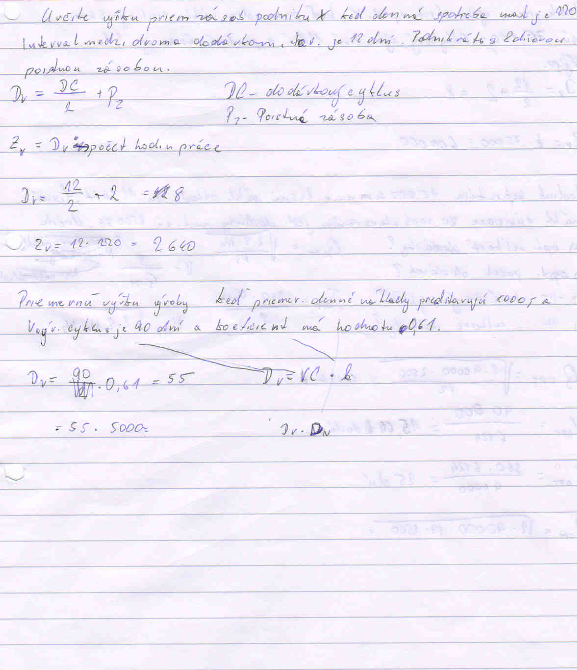 Určite výšku priem zásob podniku X keď denná spotreba mat je 220
Interval medzi dvoma dodávkami tov. je 12 dní. Podnik ráta s 2 dňovou
poistnou zásobou.
Dv = DC/2 + Pz DC - dodávkový cyklus
Pz - Poistná zásoba
Zv = Dv počet hodin práce
Dv = 12/2 + 2 = 8
Zv = 12 . 220 = 2640
Priemernú výšku výroby keď priemer. denné náklady predstavujú a
Výr. cyklus je 90 dní a koeficient má hodnotu 0,61.
Dv = 90 . 0,61 = 55 Dv = VC . k
= 55 . 5000 = Dv . DN